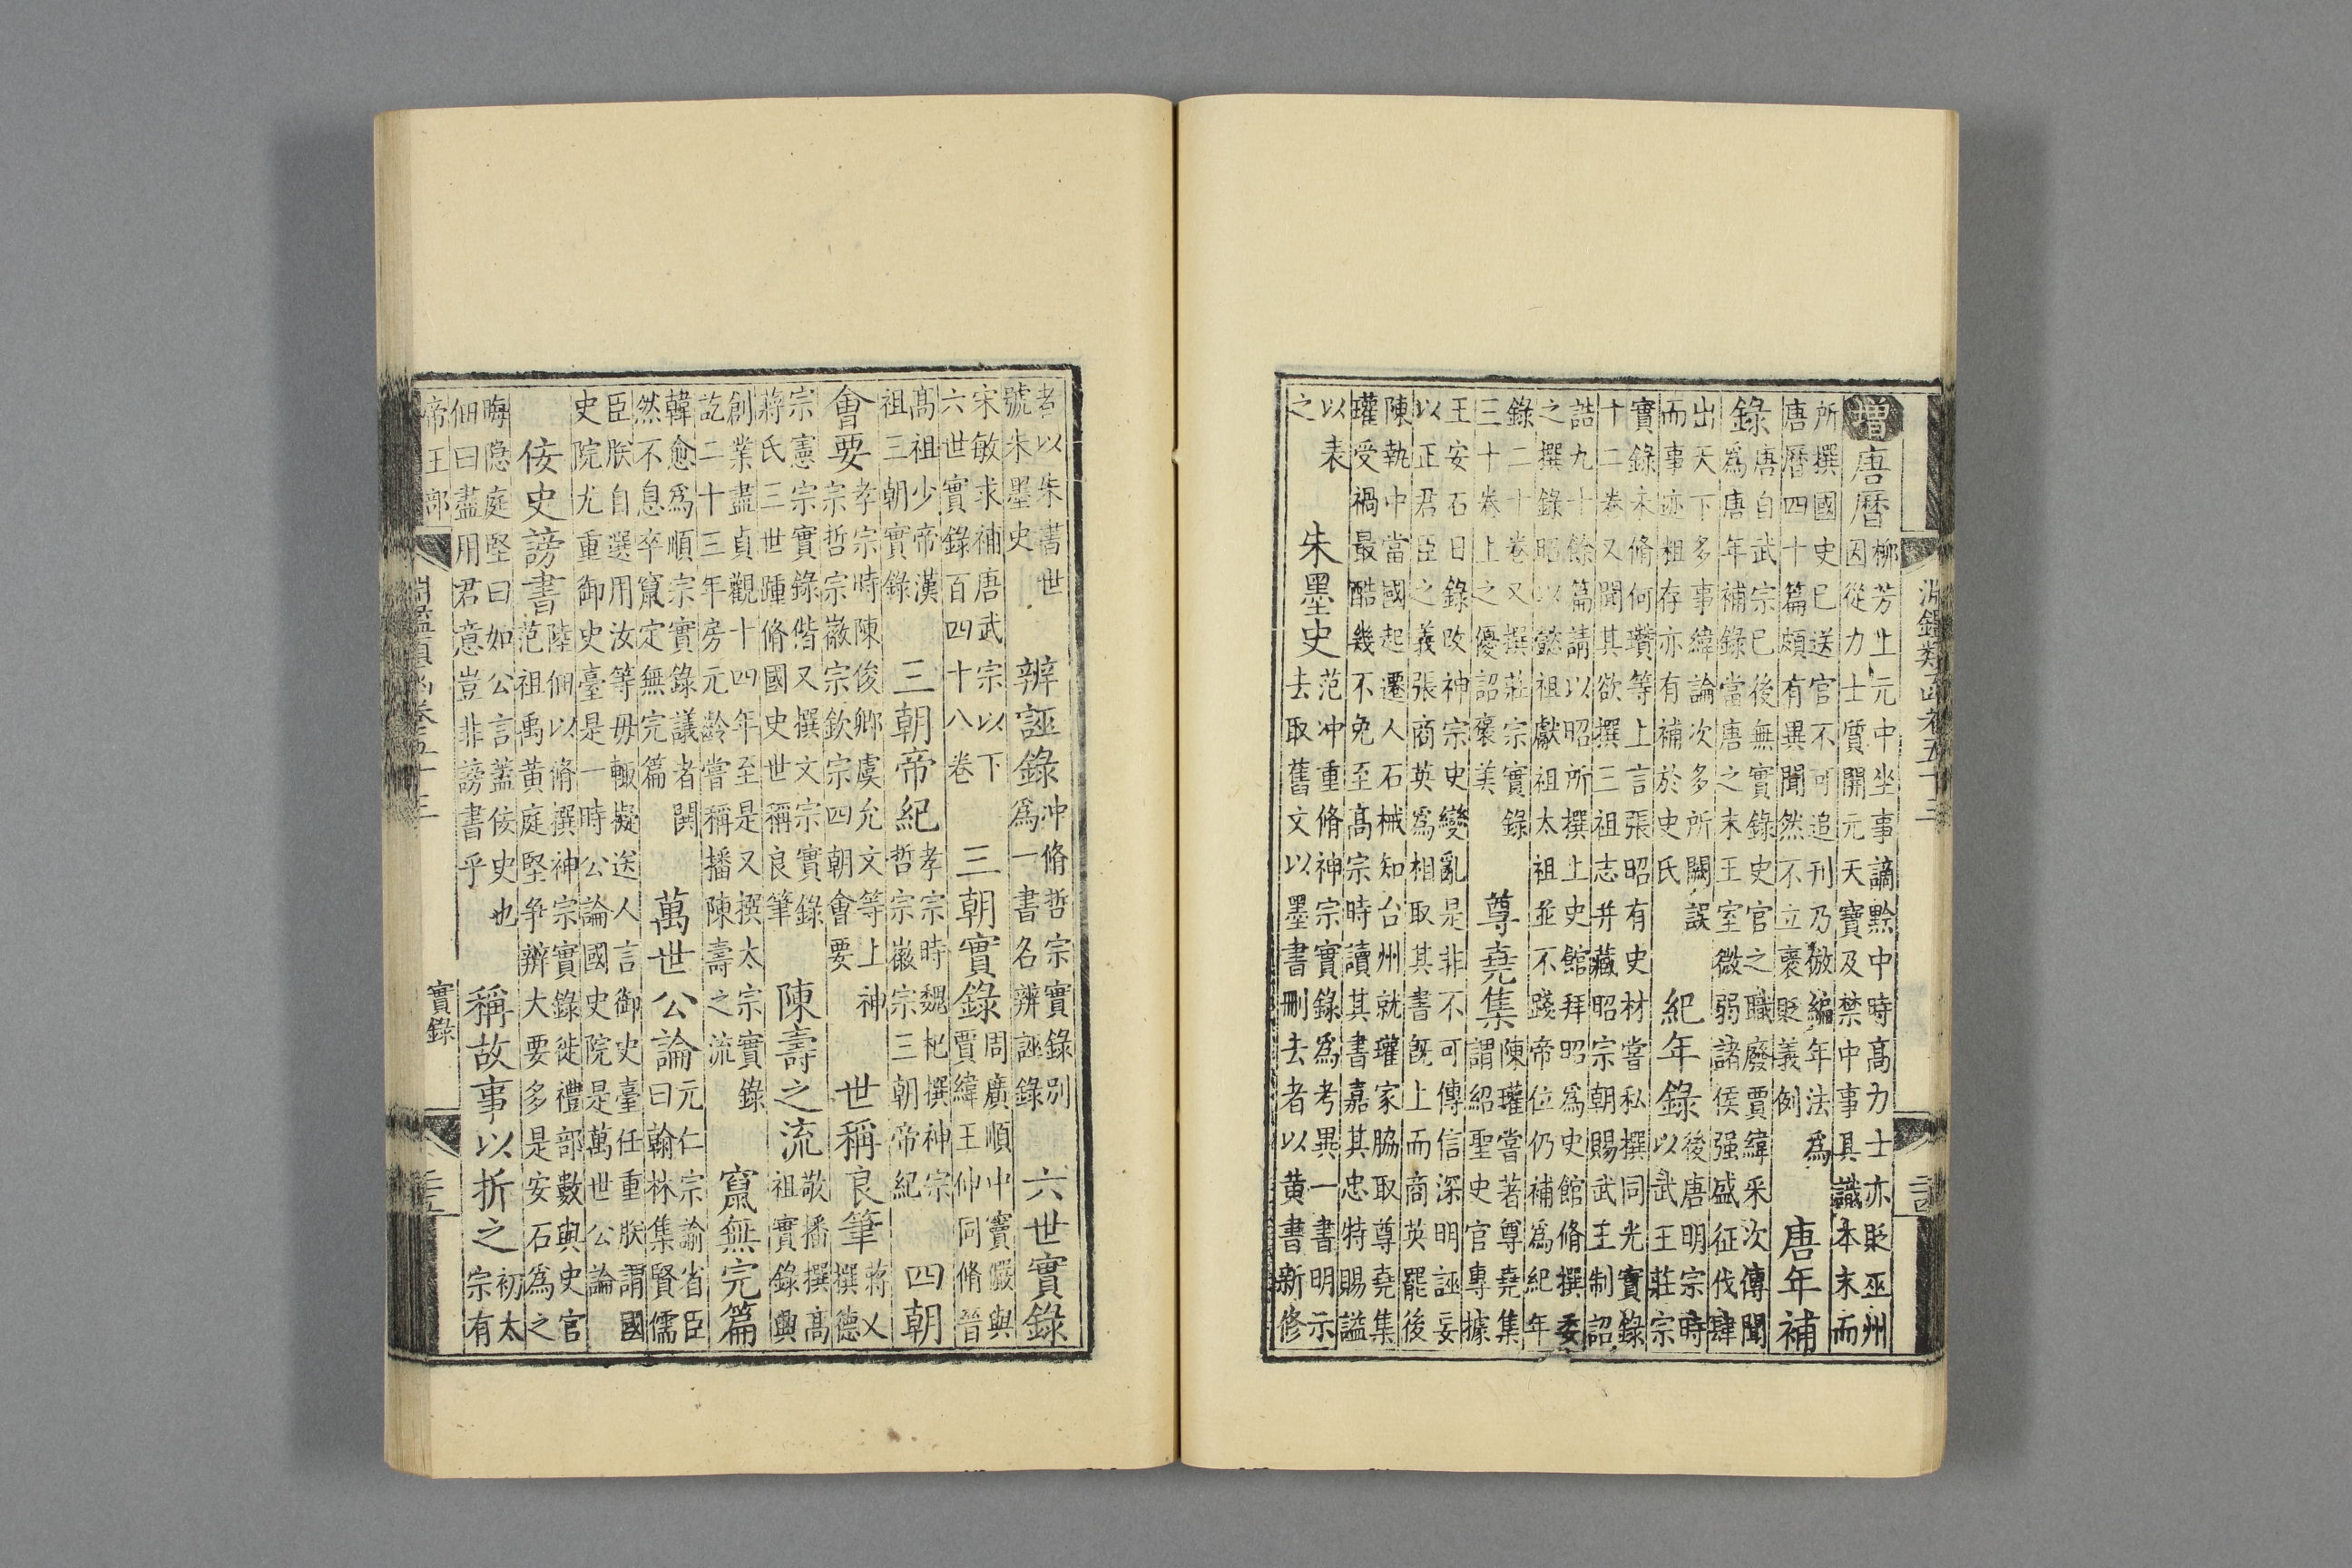 淵鑑類函卷五十三
增唐曆
柳芳上元中坐事謫黔中時高力士亦貶巫州
因從力士質開元天寶及禁中事具識本末而
所撰國史已送官不可追刊乃倣編年法為
唐曆四十篇頗有異聞然不立褒貶義例
唐年補
錄
唐自武宗已後無實錄史官之職廢賈緯采次傳聞
為唐年補錄當唐之末王室微弱諸侯强盛征伐肆
出天下多事緯論次多所闕誤
而事迹粗存亦有補於史氏
紀年錄
後唐明宗時
以武王莊宗
實錄未脩何瓚等上言張昭有史材嘗私撰同光實錄
十二卷又聞其欲撰三祖志并藏昭宗朝賜武主制詔
誥九十餘篇請以昭所撰上史館拜昭為史館脩撰委
之撰錄昭以懿祖獻祖太祖並不踐帝位仍補為紀年
錄二十卷又撰莊宗實錄
三十卷上之優詔褒美
尊堯集
陳瓘嘗著尊堯集
謂紹聖史官專據
王安石日錄改神宗史變亂是非不可傳信深明誣妄
以正君臣之義張商英為相取其書既上而商英罷後
陳執中當國起遷人石械知台州就瓘家脇取尊堯集
瓘受禍最酷幾不免至高宗時讀其書嘉其忠特賜謚
以表
之
朱墨史
范冲重脩神宗實錄為考異一書明示
去取舊文以墨書刪去者以黄書新修
者以朱書世
號朱墨史
辨誣錄
冲脩哲宗實錄別
為一書名辨誣錄
六世實錄
宋敏求補唐武宗以下
六世實錄百四十八卷
三朝實錄
周廣順中竇儼與
賈緯王仲同脩晉
高祖少帝漢
祖三朝實錄
三朝帝紀
孝宗時魏杞撰神宗
哲宗徽宗三朝帝紀
四朝
會要
孝宗時陳俊卿虞允文等上神
宗哲宗徽宗欽宗四朝會要
世稱良筆
蔣乂
撰德
宗憲宗實錄偕又撰文宗實錄
蔣氏三世踵脩國史世稱良筆
陳壽之流
敬播撰高
祖實錄興
創業盡貞觀十四年至是又撰太宗實錄
訖二十三年房元齡嘗稱播陳壽之流
竄無完篇
韓愈為順宗實錄議者鬨
然不息卒竄定無完篇
萬世公論
元仁宗諭省臣
曰翰林集賢儒
臣朕自選用汝等毋輙擬送人言御史臺任重朕謂國
史院尤重御史臺是一時公論國史院是萬世公論
佞史謗書
陸佃以脩撰神宗實錄徙禮部數與史官
范祖禹黄庭堅争辨大要多是安石為之
晦隐庭堅曰如公言蓋佞史也
佃曰盡用君意豈非謗書乎
稱故事以折之
初太
宗有
帝王部
淵鑑類函卷五十三
實錄